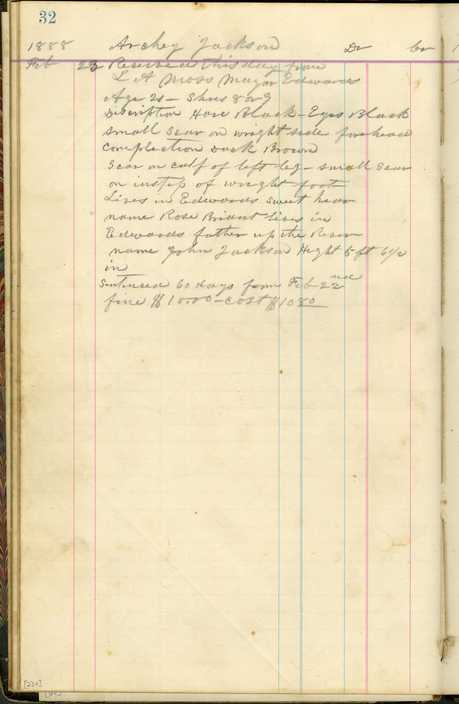 32
1888 Archey Jackson Dr Cr
Feb 23 Received this day from
L A Moss Mayor Edwards
Age 21 - Shoes 8 or 9
Discription Hare Black - Eyes Black
small Scar on wright side forhead
Complection dark Brown
Scar on calf of left leg - small Scar
on instep of wright foot
Lives in Edwards sweet hear
name Rose Briant Lives in
Edwards father up the River
name John Jackson Hight 5 ft 6 1/2
in
Sentenced 60 days from Feb 22nd
fine $10.00 - Cost $10.80